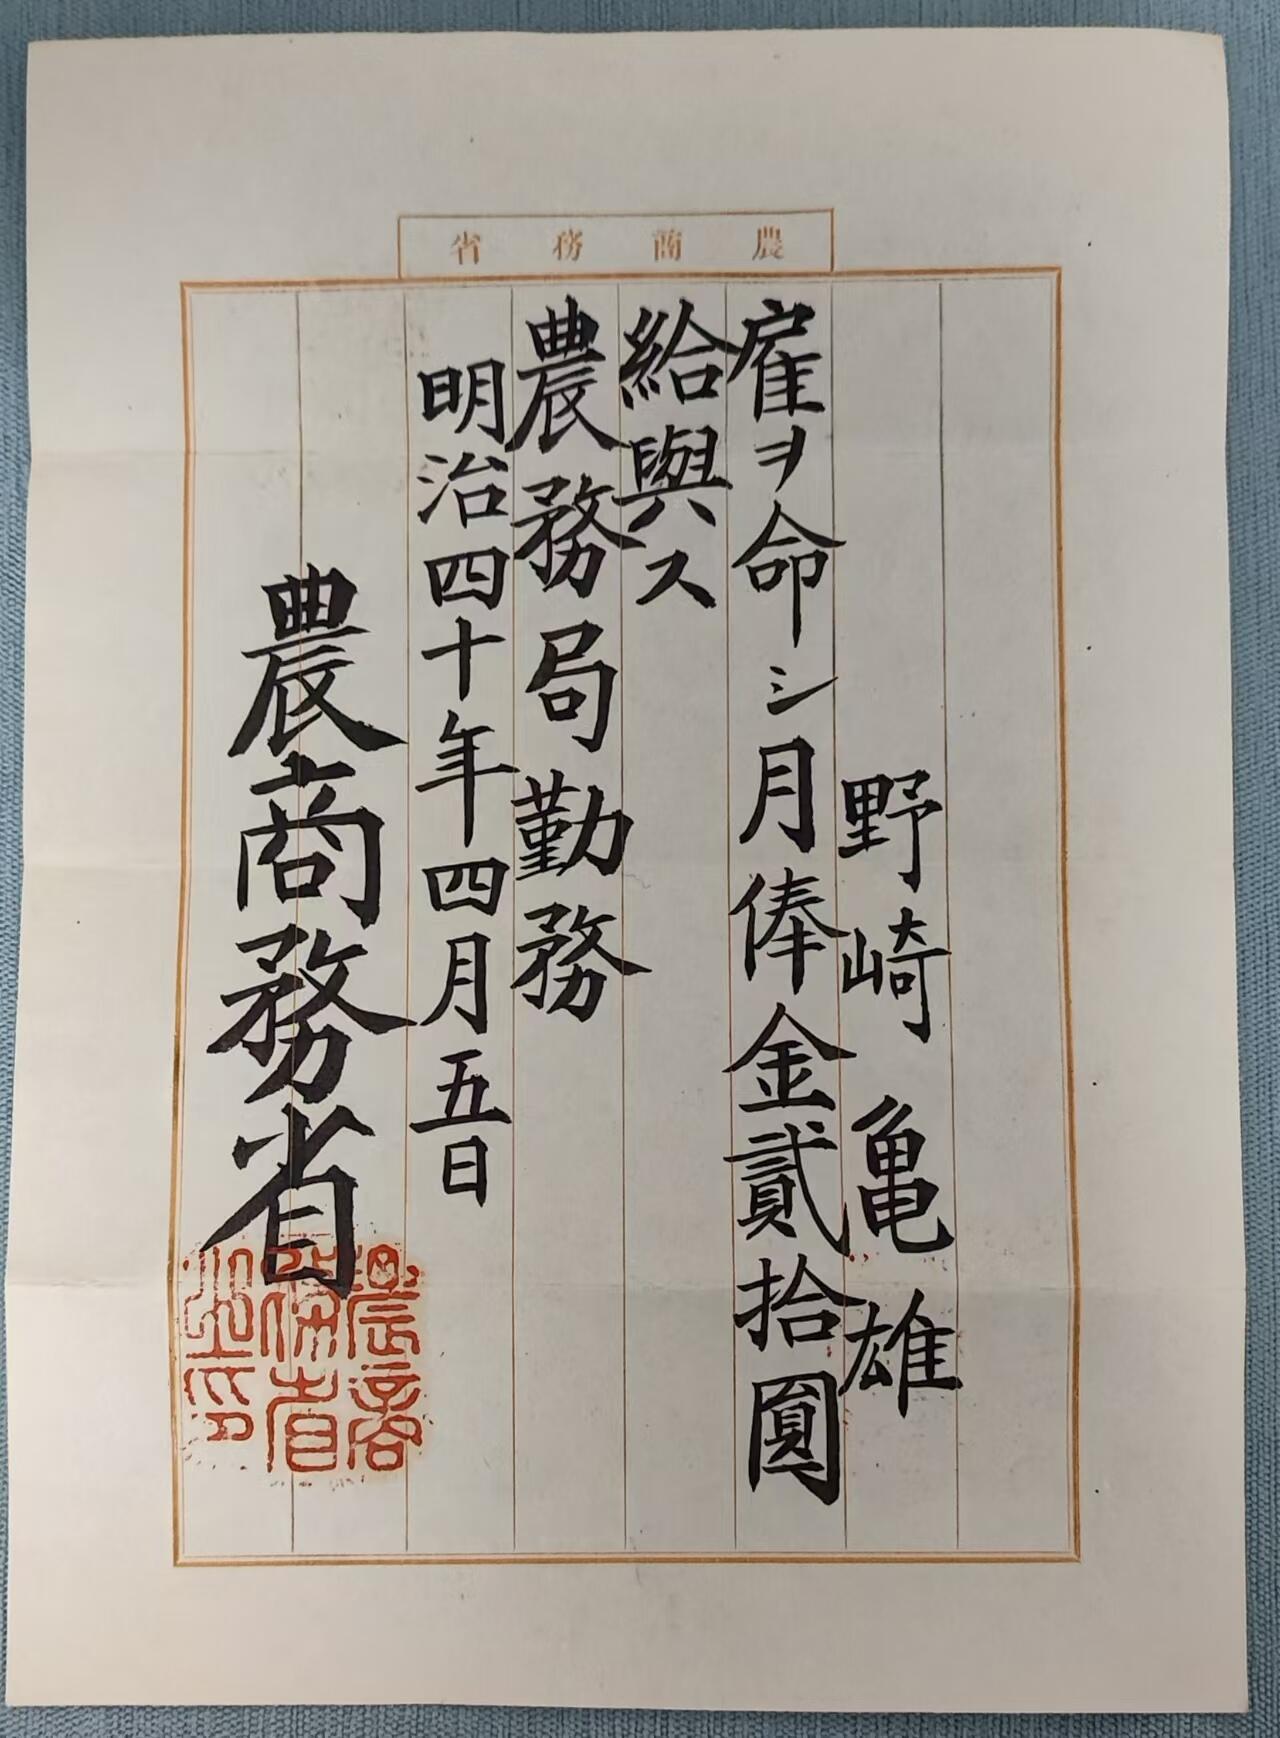 農商務省
野崎亀雄
雇ヲ命シ月俸金貳拾圓
給與ス
農務局勤務
明治四十年四月五日
農商務省
農商
務省
之印